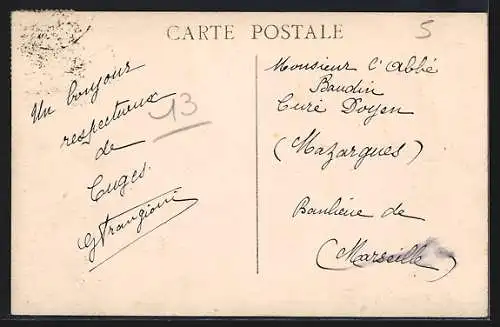 CARTE POSTALE
5
Un bonjour
respectueux
de
Cuges.
G Frangioni
13
Monsieur l'Abbé
Baudin
Curé Doyen
(Mazargues)
Banlieue de
(Marseille)